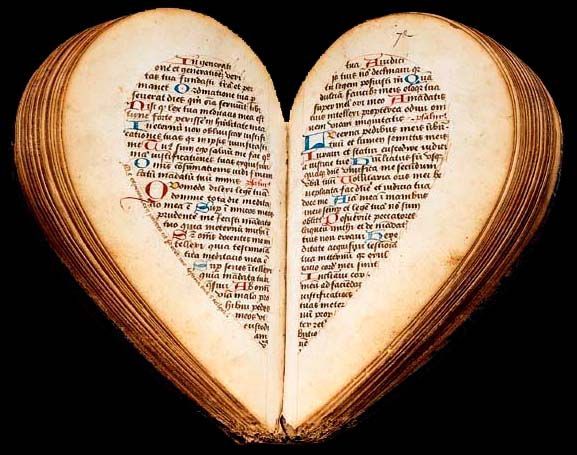 In generati
one et generatione veri
tas tua fundasti terrā et per
manet Ordinatione tua p
severat dies qm oīa serviūt tibi
Nisi q lex tua meditatio mea est
tunc forte perissem in humilitate mea
In eternū non obliviscar iustifi
cationes tuas qr in ipsis vivificasti
me Tuus sum ego salvū me fac qm
iustificationes tuas exquisivi
Omnis cōsūmationis vidi finem
latū mādatū tuū nimis
Quomodo dilexi legē tuā
domine tota die medita
tio mea ē Sup inimicos meos
prudente me fecisti mādato
tuo quia in eternū michi ē
Sup oms docentes me in
tellexi quia testimōia
tua meditatio mea ē
Sup senes ītellexi
quia mādata tua
quesivi Ab omi
via mala pro
hibui pedes
meos vt
custodi
am
72
tua A iudiciis
tuis nō declinavi qr
tu legem posuisti m Quā
dulcia faucibus meis eloqa tua
super mel ori meo A mādatis
tuis intellexi propterea odivi om
nem viam iniquitatis
Lucerna pedibus meis verbū
tuū et lumen semitis meis
Iuravi et statui custodire iudicia
iusticie tue Humiliatus sū vsq
quaq dne vivifica me secundum
verbū tuū Voluntaria oris mei be
neplacita fac dne et iudicia tua
doce me Aīa mea ī manibus
meis semp et legem tuā nō sum
oblitus Posuerūt peccatores
laqueū michi et de mādatis
tuis non erravi Here
ditate acquisivi testimōia
tua in eternū qr exul
tatio cordis mei sunt
Inclinavi cor
meū ad faciendas
iustificationes
tuas in eter
nū prop
ter ret
ributio
nē